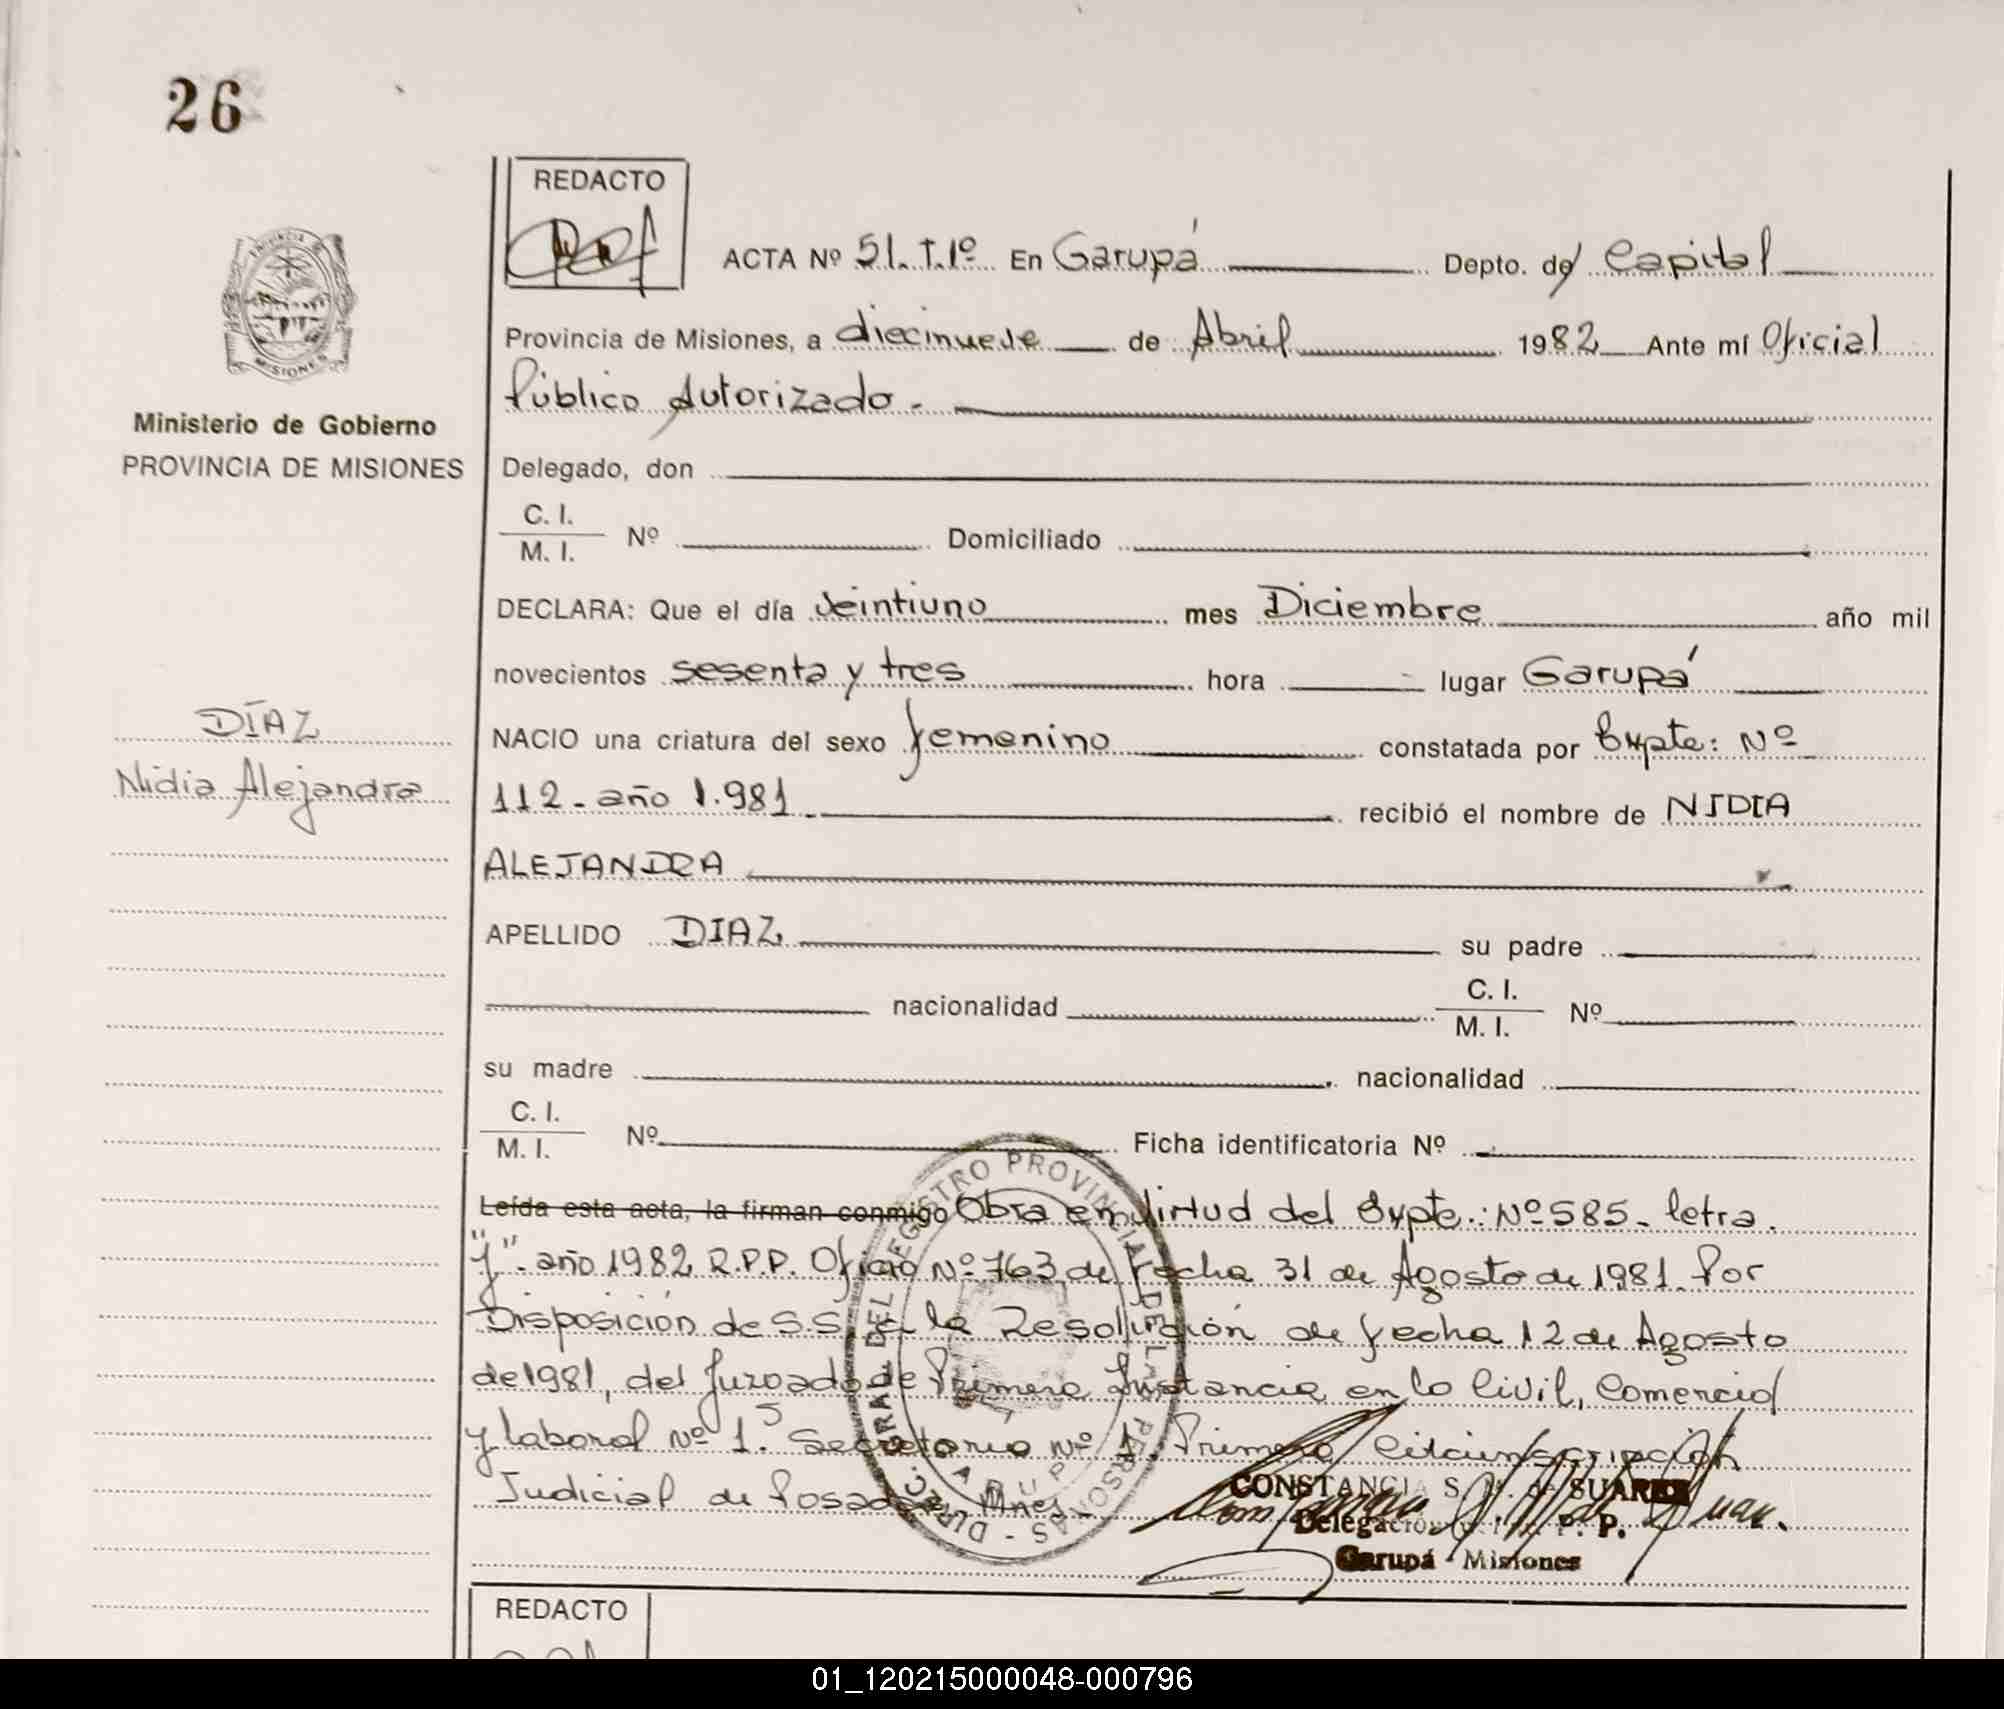 26
REDACTO
PROVINCIA
MISIONES
Ministerio de Gobierno
PROVINCIA DE MISIONES
ACTA Nº 51. T.1º En Garupá Depto. de Capital
Provincia de Misiones, a diecinueve de Abril 1982 Ante mí Oficial
Público Autorizado.
Delegado, don
C. I.
M. I. Nº Domiciliado
DECLARA: Que el día veintiuno mes Diciembre año mil
novecientos sesenta y tres hora lugar Garupá
DÍAZ
Nidia Alejandra
NACIO una criatura del sexo femenino constatada por Expte: Nº
112 - año 1.981 recibió el nombre de NIDIA
ALEJANDRA
APELLIDO DIAZ su padre
nacionalidad C. I.
M. I. Nº
su madre nacionalidad
C. I.
M. I. Nº Ficha identificatoria Nº
Leída esta acta, la firman conmigo Obra en virtud del Expte.: Nº 585 - letra
"Y" - año 1982 R.P.P. Oficio Nº 763 de fecha 31 de Agosto de 1981. Por
Disposición de S.S. a la Resolución de fecha 12 de Agosto
de 1981, del Juzgado de Primera Instancia en lo Civil, Comercial
y laboral Nº 1. Secretaria Nº 1. Primera Circunscripción
Judicial de Posadas Mnes
REGISTRO PROVINCIAL DE LAS PERSONAS
CONSTANCIA S. de SUAREZ
Delegación P. P.
Garupá - Misiones
REDACTO
01_120215000048-000796